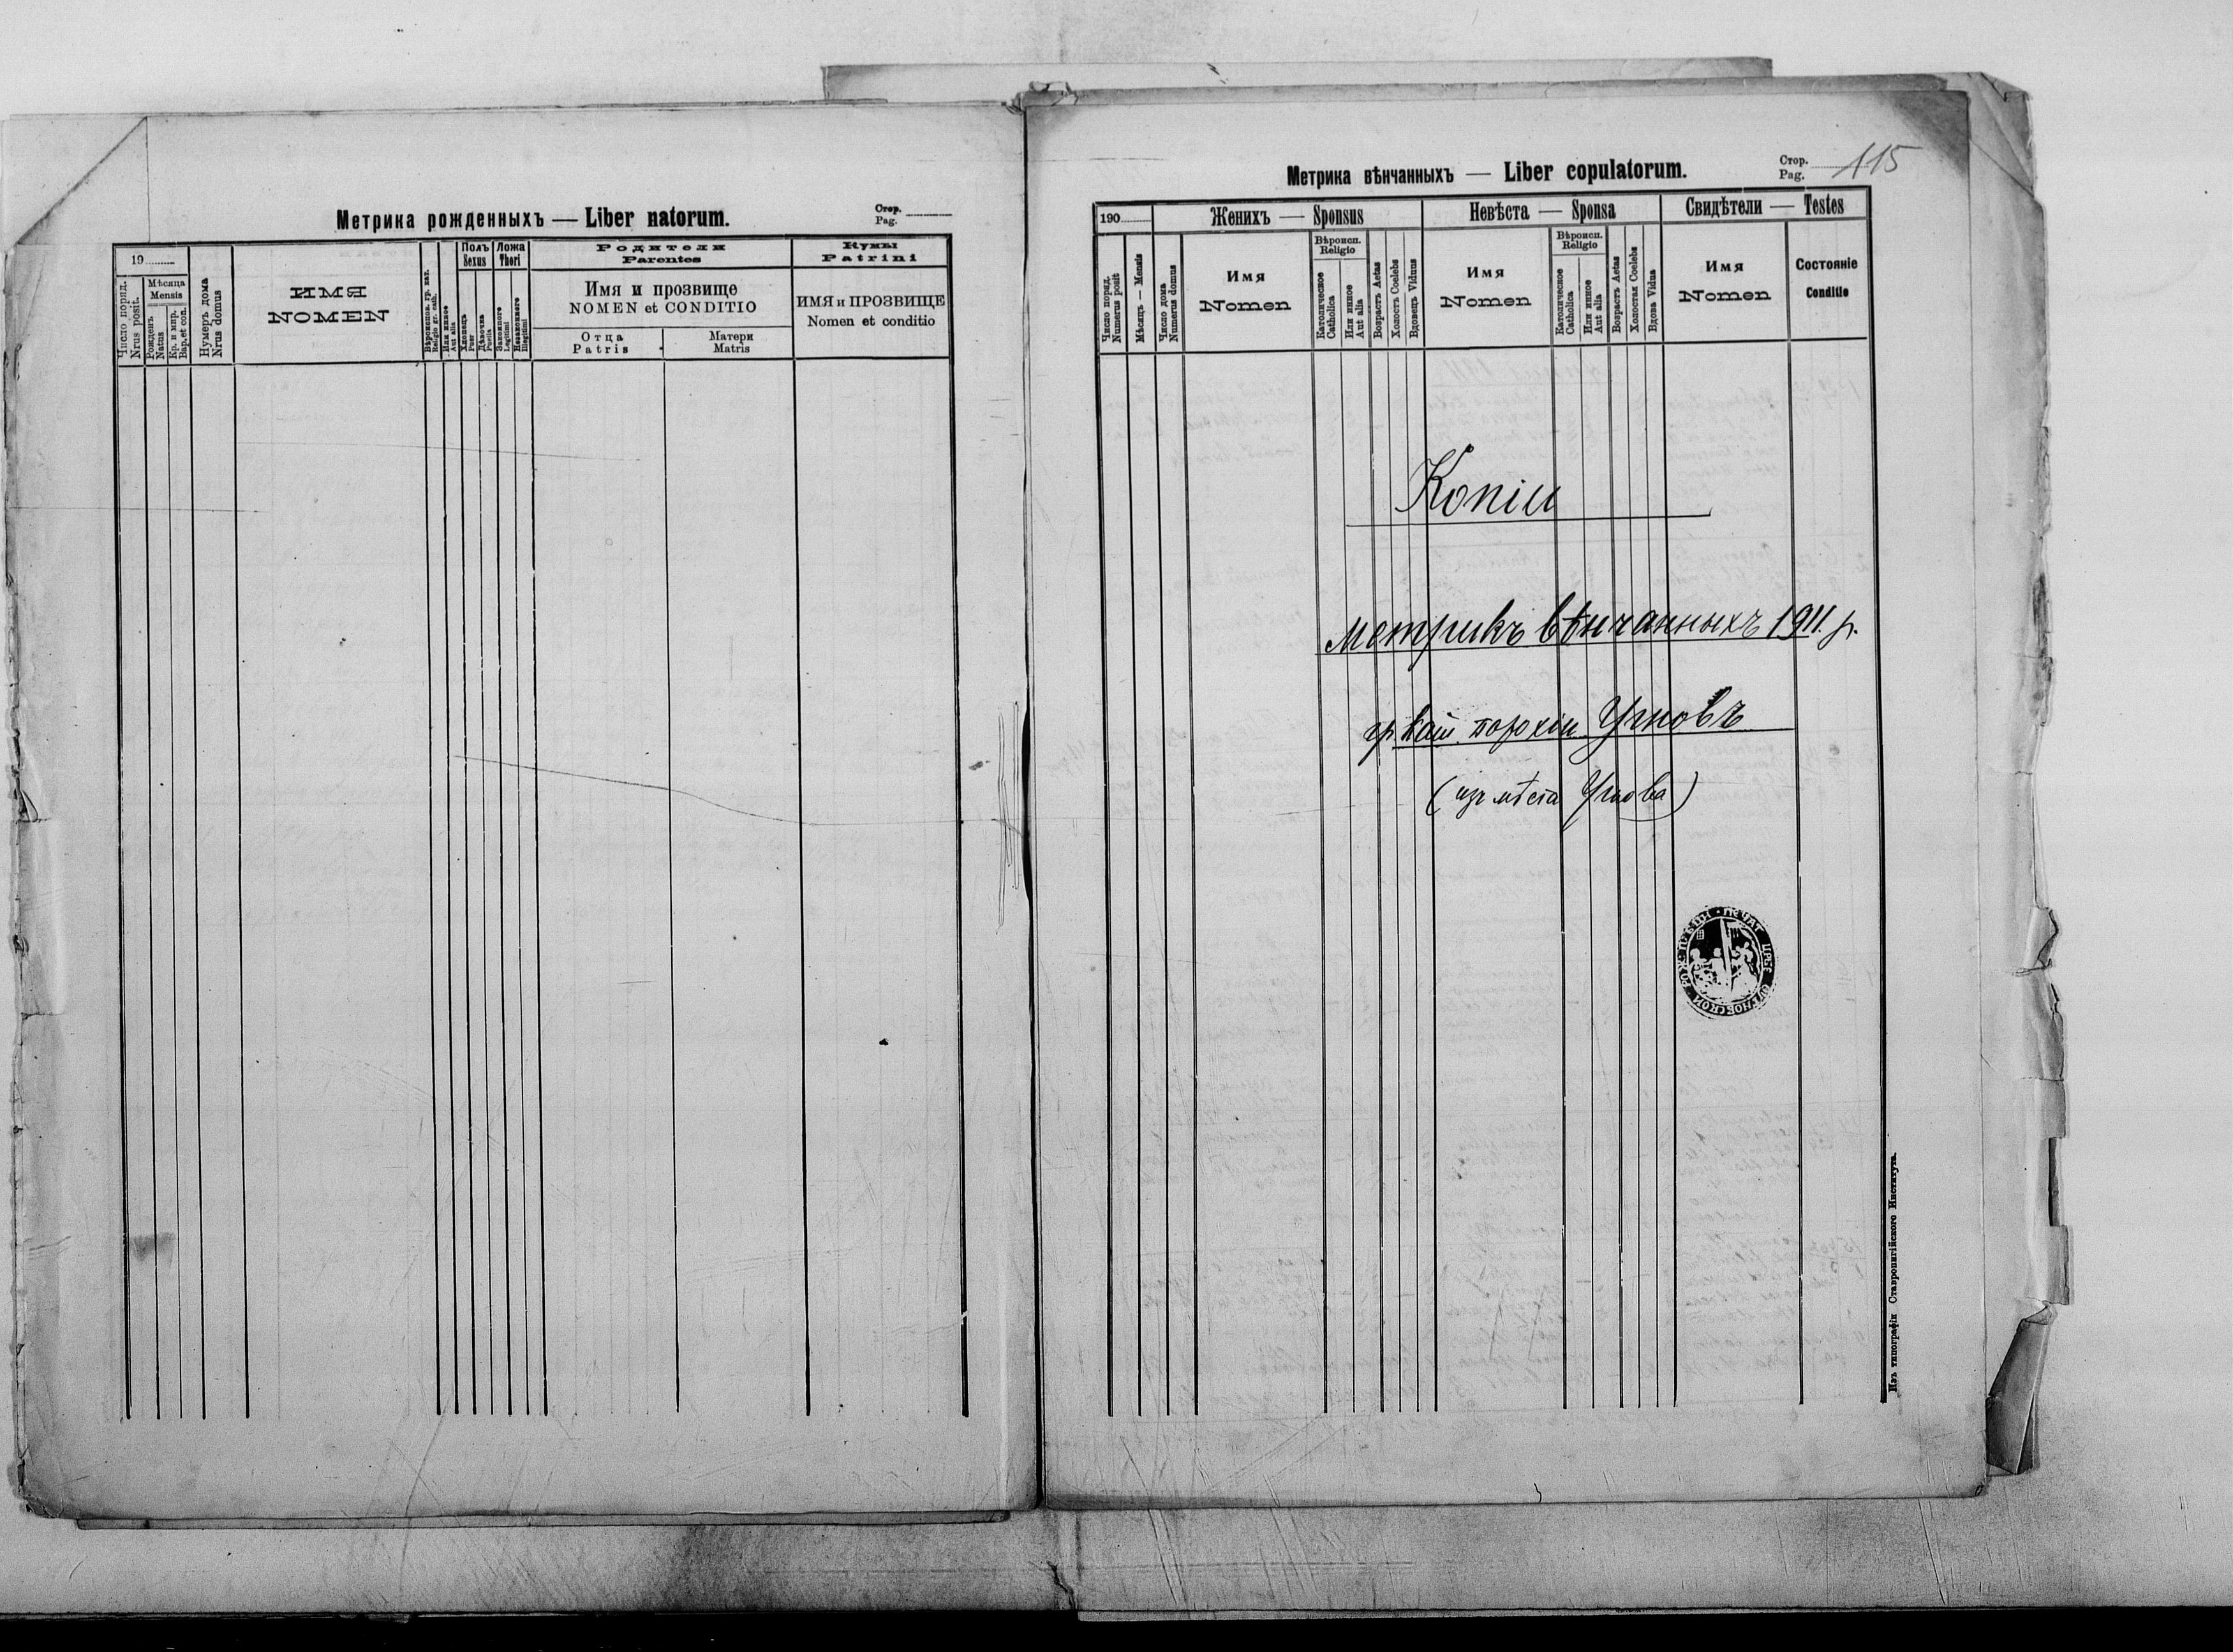 Метрика рожденныхъ — Liber natorum.
Стор.
Pag.
19
Число поряд.
Nrus posit.
Мѣсяца
Mensis
Рожденъ
Natus
Кр. и мѵр.
Bap. et con.
Нумеръ дома
Nrus domus
ИМЯ
NOMEN
Или инное
Aut alia
Полъ
Sexus
Хлопецъ
Puer
Дѣвочка
Puella
Ложа
Thori
Законного
Legitimi
Незаконного
Illegitimi
Родители
Parentes
Имя и прозвище
NOMEN et CONDITIO
Отца
Patris
Матери
Matris
Кумы
Patrini
ИМЯ и ПРОЗВИЩЕ
Nomen et conditio
Метрика вѣнчанныхъ — Liber copulatorum.
Стор.
Pag.
115
190
Число поряд.
Numerus posit
Мѣсяцъ — Mensis
Женихъ — Sponsus
Число дома
Numerus domus
Имя
Nomen
Вѣроисп.
Religio
Католическое
Catholica
Или инное
Aut alia
Возрастъ Aetas
Холостъ Coelebs
Вдовецъ Viduus
Невѣста — Sponsa
Имя
Nomen
Вѣроисп.
Religio
Католическое
Catholica
Или инное
Aut alia
Возрастъ Aetas
Холостая Coelebs
Вдова Vidua
Свидѣтели — Testes
Имя
Nomen
Состояніе
Conditio
Копіи
метрикъ вѣнчанныхъ 1911. р.
гр кат. парохіи Угновъ
(изъ мѣста Угнова)
Изъ типографіи Ставропигійского Института.